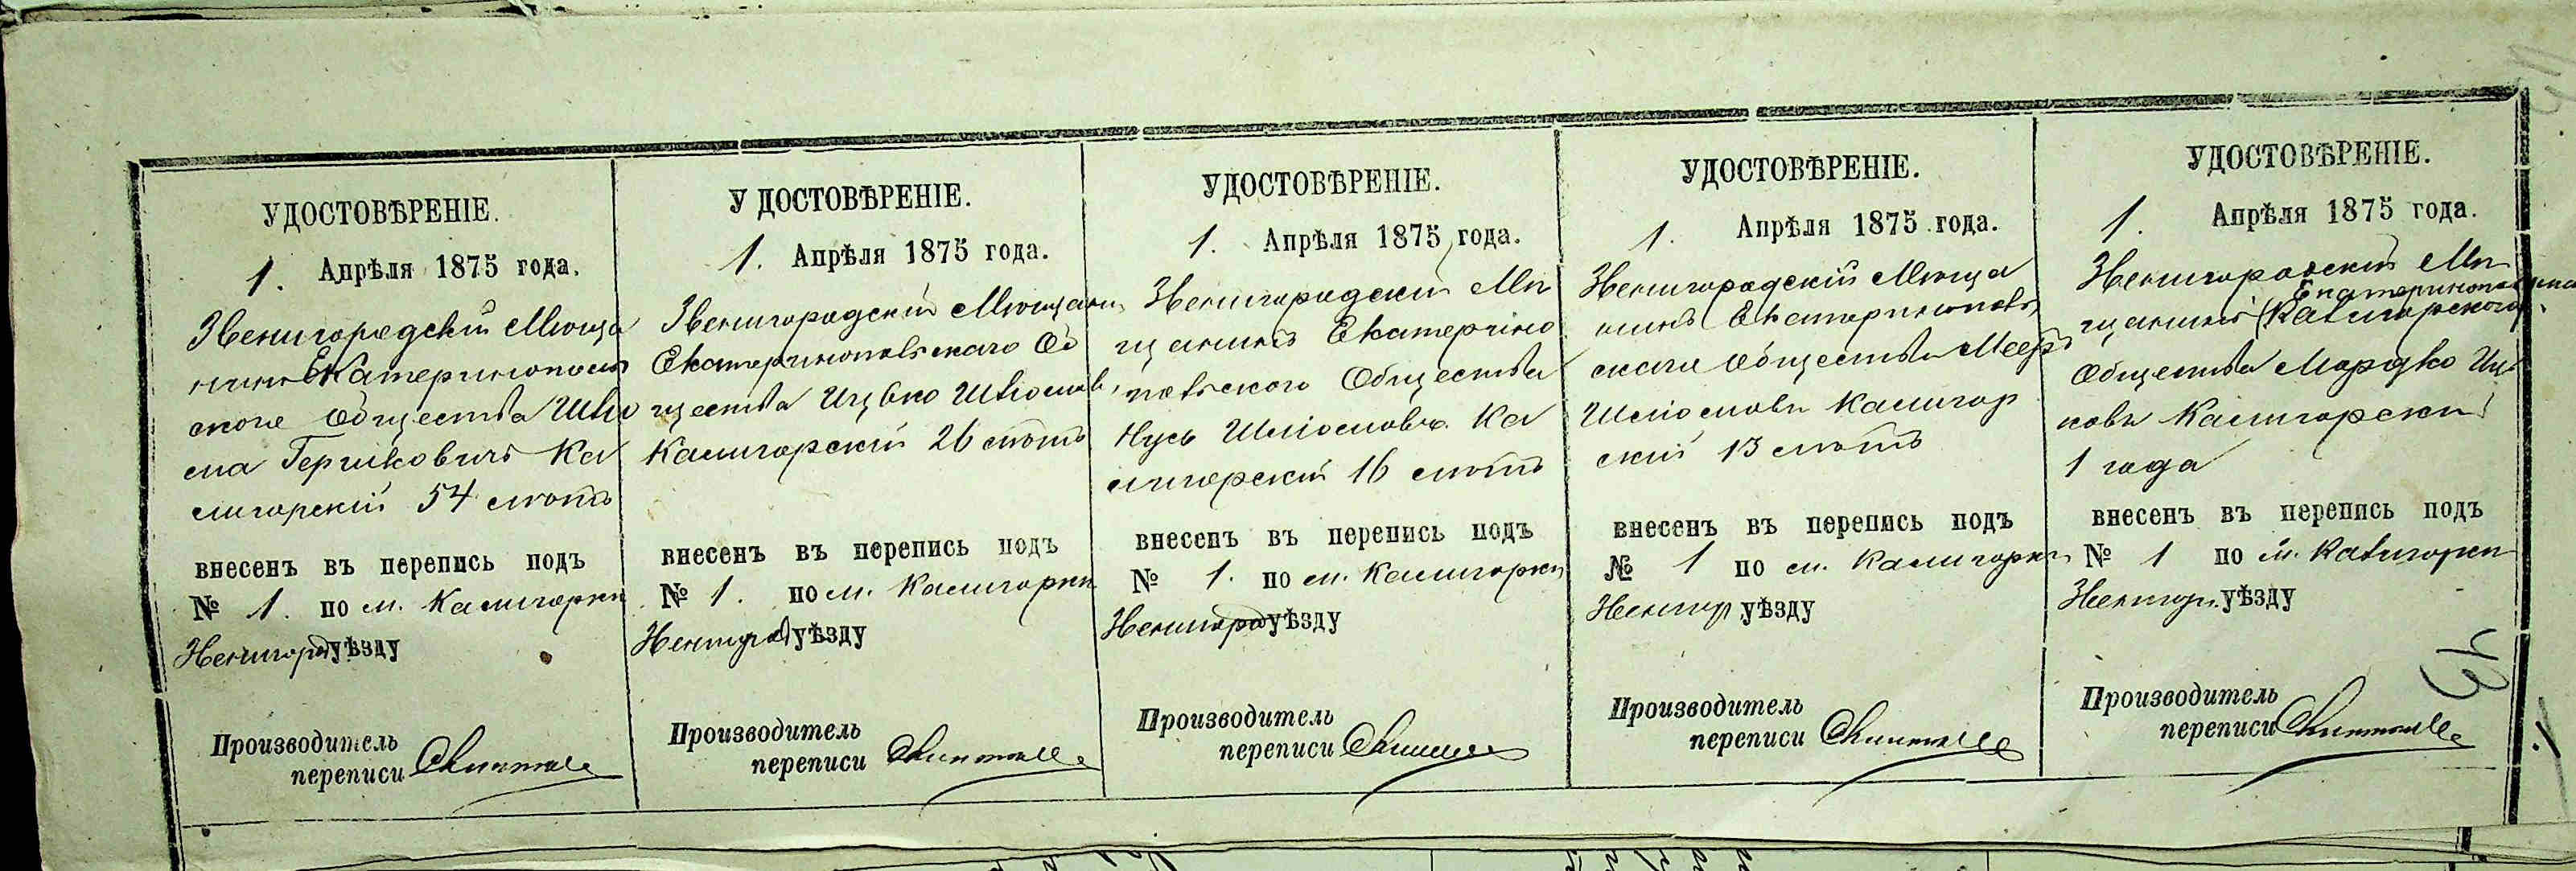 УДОСТОВѢРЕНІЕ.
1. Апрѣля 1875 года.
Звенигородскій Мѣща
нинъ Екатеринополь
скаго Общества Шліо
ма Гершковичъ Ка
лигорскій 54 лѣтъ
внесенъ въ перепись подъ
№ 1. по м. Калигорки
Звенигород уѣзду
Производитель
переписи
У ДОСТОВѢРЕНІЕ.
1. Апрѣля 1875 года.
Звенигородскій Мѣщани
Екатеринопольскаго Об
щества Ицько Шліомов.
Калигорскій 26 лѣтъ
внесенъ въ перепись подъ
№ 1. по м. Калигорки
Звенигород уѣзду
Производитель
переписи
УДОСТОВѢРЕНІЕ.
1. Апрѣля 1875 года.
Звенигородскій Мѣ
щанинъ Екатерино
польского Общества
Нусь Шліомовъ Ка
лигорскій 16 лѣтъ
внесенъ въ перепись подъ
№ 1. по м. Калигорки
Звенигород уѣзду
Производитель
переписи
УДОСТОВѢРЕНІЕ.
1. Апрѣля 1875 года.
Звенигородскій Мѣща
нинъ Екатеринополь
скаго Общества Мееръ
Шліомовъ Калигор
скій 13 лѣтъ
внесенъ въ перепись подъ
№ 1 по м. Калигорки
Звенигор уѣзду
Производитель
переписи
УДОСТОВѢРЕНІЕ.
1. Апрѣля 1875 года.
Звенигородскій Мѣ
щанинъ (Калигорского)
Общества Мордко Иц
ковъ Калигорскій
1 года
внесенъ въ перепись подъ
№ 1 по м. Калигорки
Звенигор. уѣзду
Производитель
переписи
43